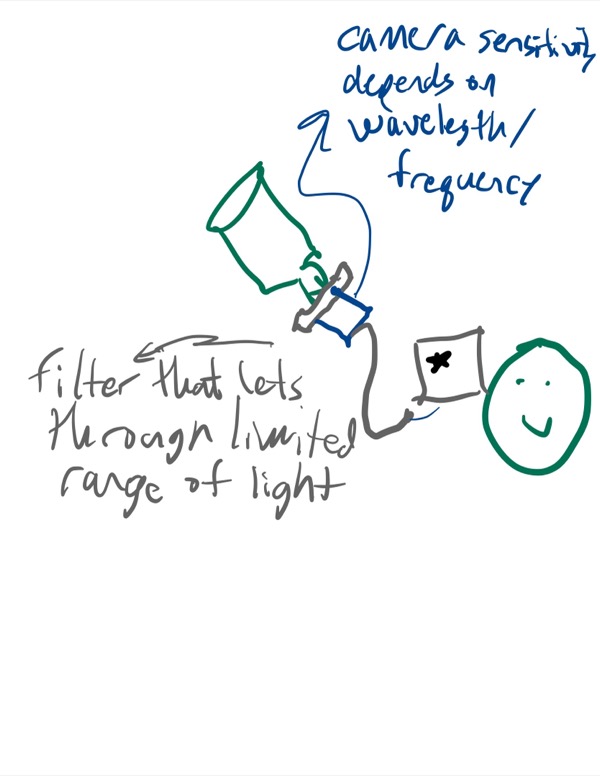 camera sensitivity
depends on
wavelength/
frequency
filter that lets
through limited
range of light